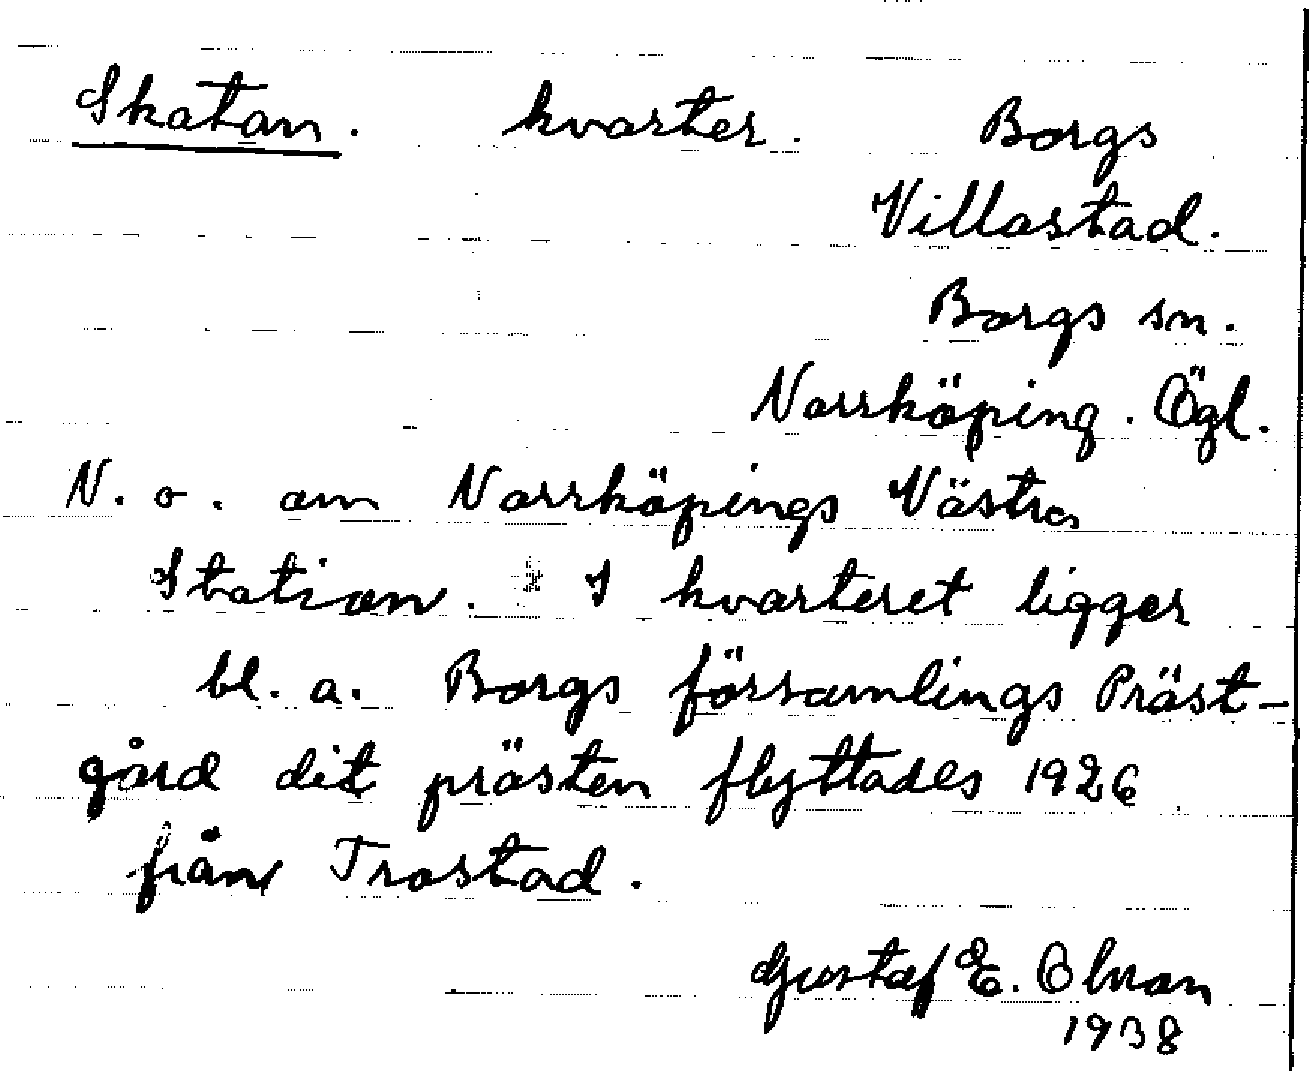 Skatan. kvarter. Borgs
Villastad.
Borgs sn.
Norrköping. Ögl.
N. o. om Norrköpings Västra
Station. I kvarteret ligger
bl. a. Borgs församlings Präst-
gård dit prästen flyttades 1926
från Trostad.
Gustaf E. Olman
1938